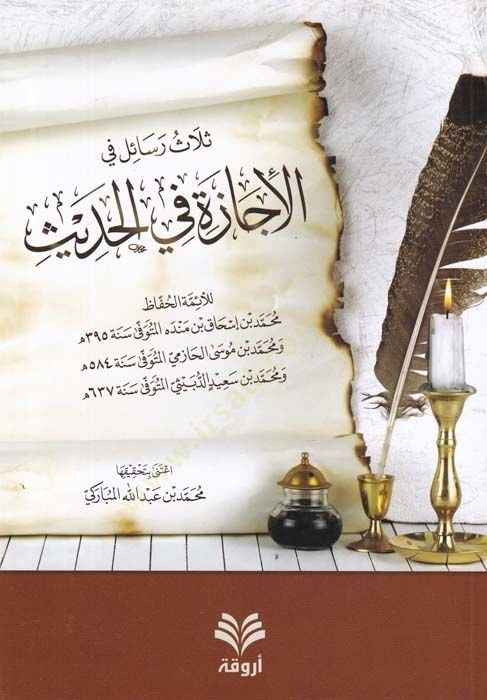 ثلاث رسائل في
الأجازة في الحديث
للأئمة الحفاظ
محمد بن إسحاق بن منده المتوفى سنة ٣٩٥هـ
ومحمد بن موسى الحازمي المتوفى سنة ٥٨٤هـ
ومحمد بن سعيد الدبيثي المتوفى سنة ٦٣٧هـ
اعتنى بتحقيقها
محمد بن عبد الله المباركي
أروقة